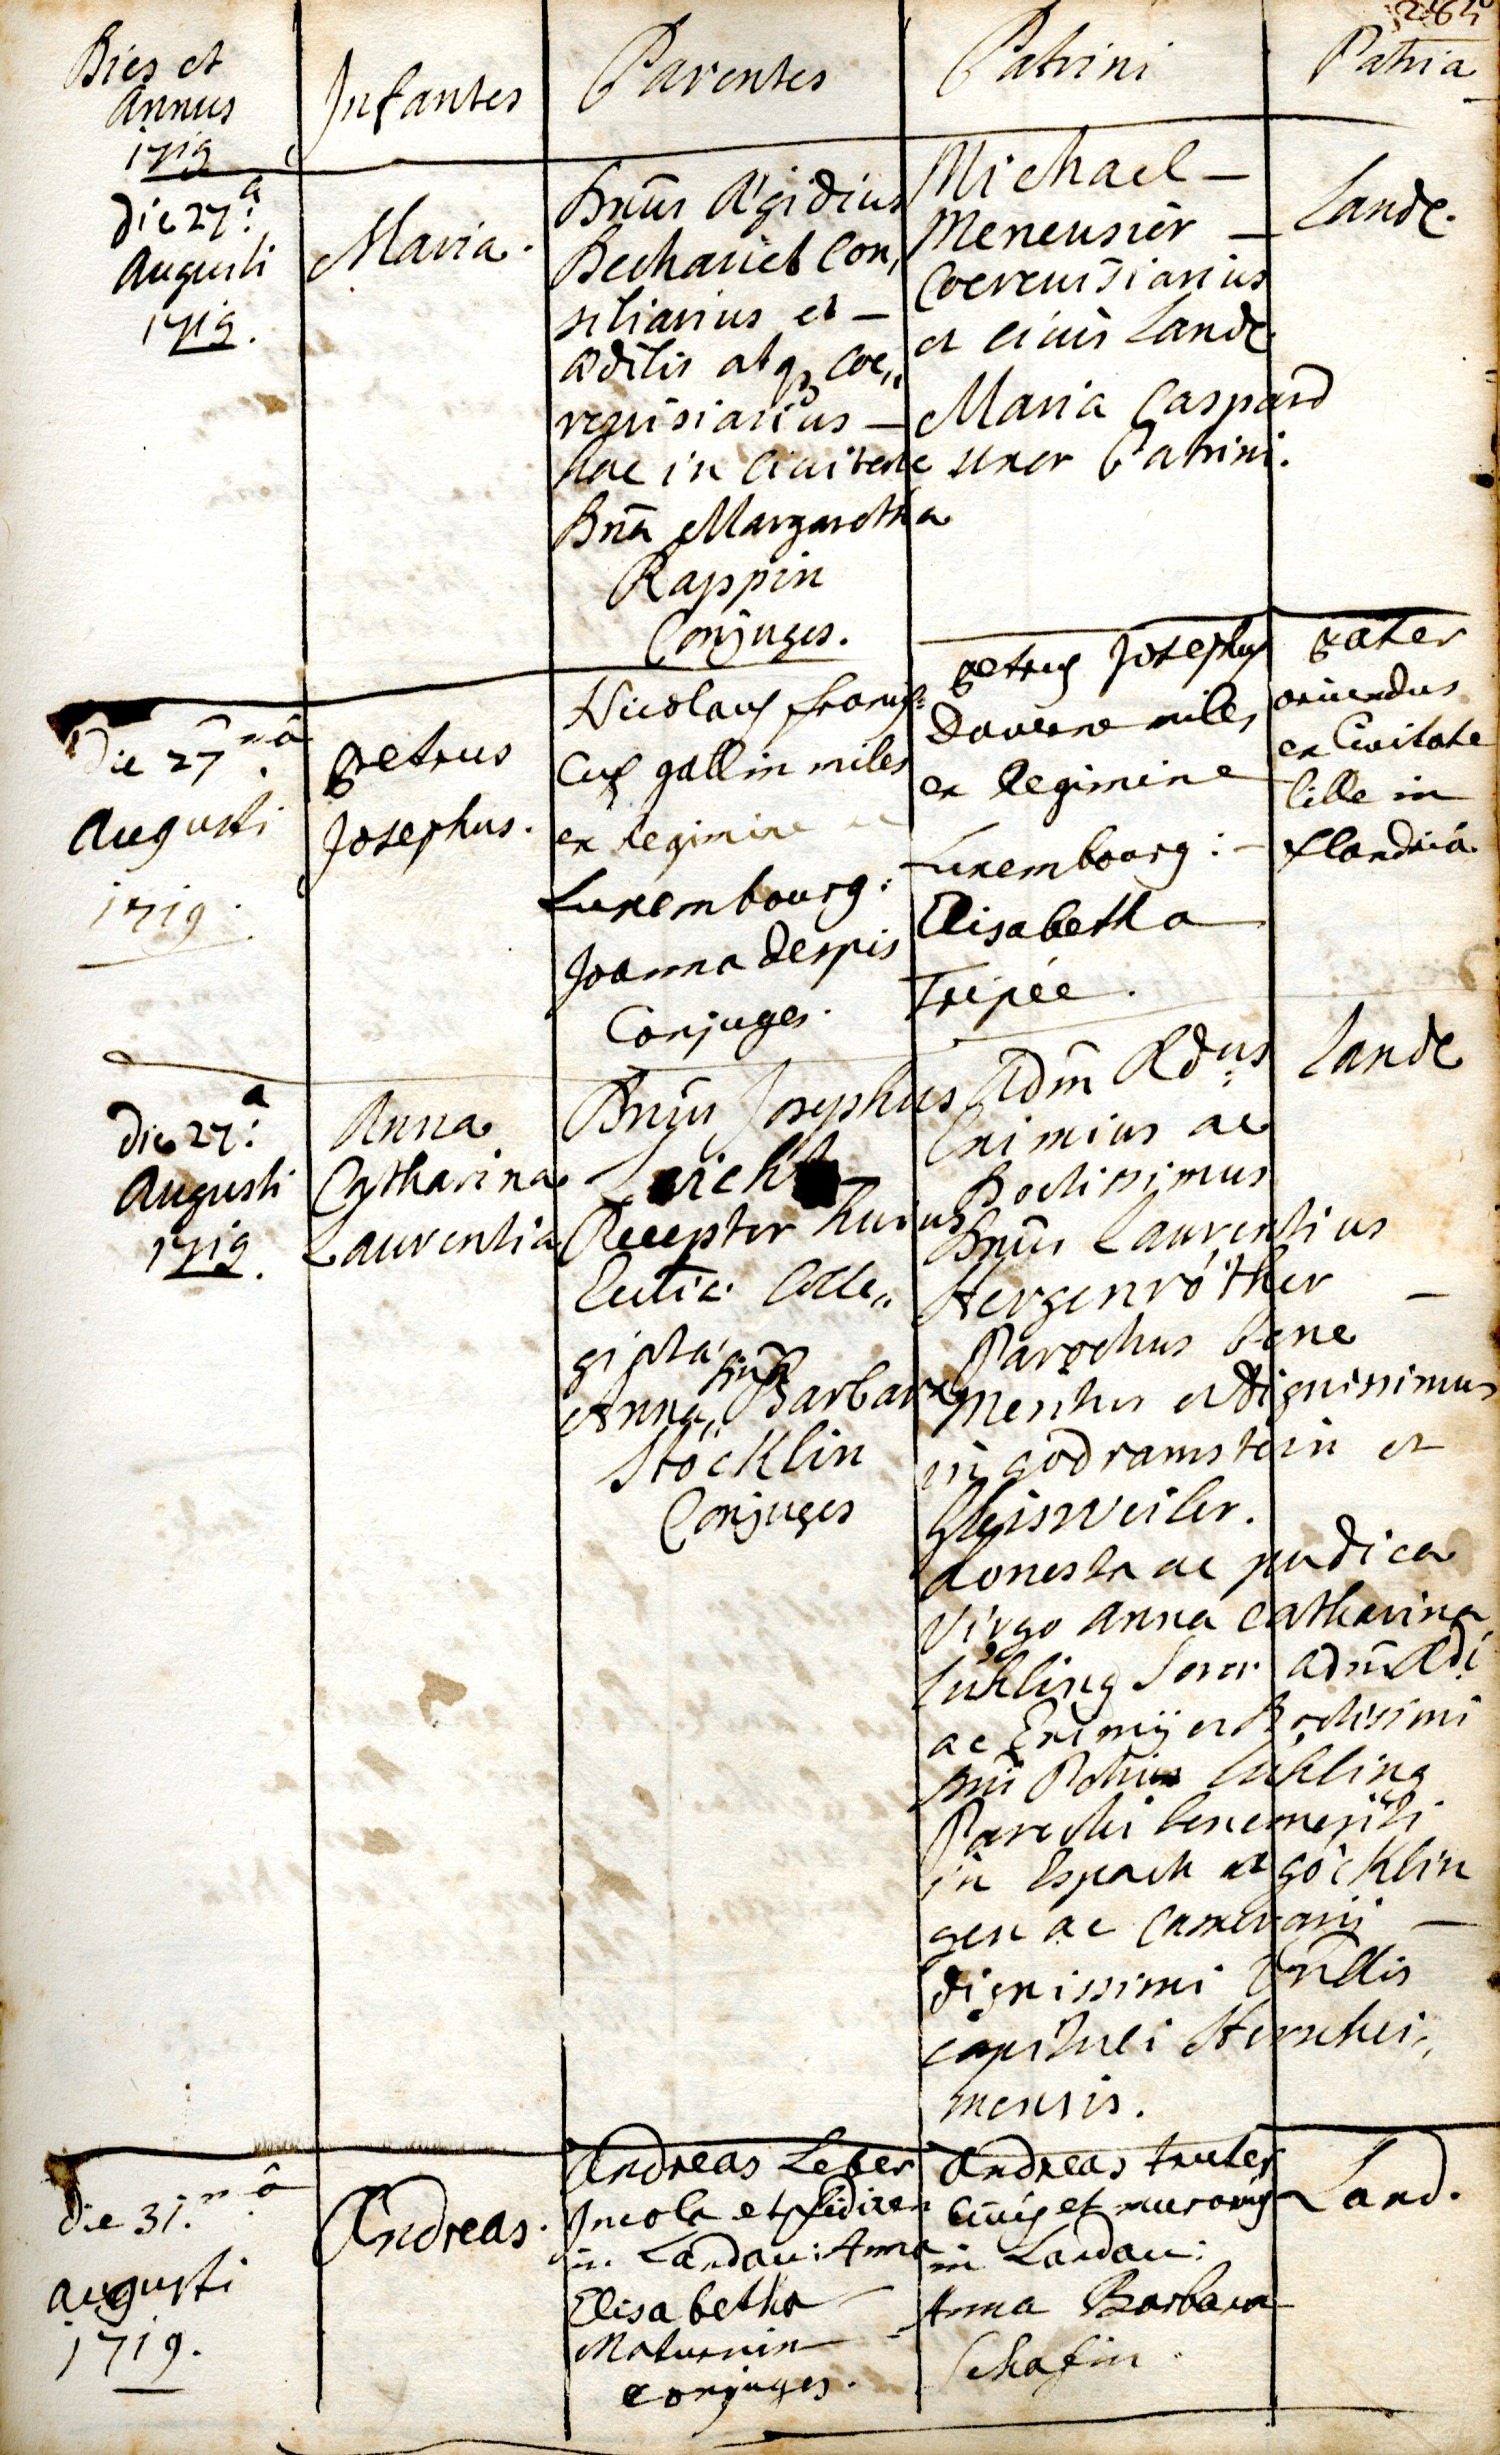 264
Dies et
Annus
1719
Infantes
Parentes
Patrini
Patria
die 27.a
Augusti
1719.
Maria.
Dnus Aegidius
Bechariet Con,
siliarius et —
Aedilis atq, Coe,,
revisiarius —
hac in Civitate
Dna Margaretha
Rappin
Conjuges.
Michael —
Meneusier —
Coerevisiarius
et civis Landc
Maria Caspard
uxor Patrini.
Landc.
die 27 mâ
Augusti
1719.
petrus
Josephus.
Nicolaus francis:
cus gallin miles
ex regimine
Luxembourg:
Joanna despis
Conjuges.
petrus Josephus
Daverne miles
ex Regimine
Luxembourg: —
Elisabetha
Tripée.
pater
oriundus
ex Civitate
lille in
flandriâ
die 27.a
Augusti
1719.
Anna
Catharina
Laurentia
Dnus Josephus
Receptor huius
Collae,,
giatae
Anna,, Barbara
Stöcklin
Conjuges
Adm Rdus
Eximius ac
Doctissimus
Dnus Laurentius
Hergenröther —
Parochus bene
Meritus et dignissimus
in godramstein et
Gleisweiler.
honesta ac pudica
Virgo Anna Catharina
Lühling Soror adm Rdi
ac Eximij et Doctissimi
Dni Lühling
Parochi benemeriti
in Espach et göcklin
gen ac Camerarij —
dignissimi
capituli Herxhei,,
mensis.
Landc
die 31. mâ
augusti
1719.
Andreas.
Andreas Leber
Incola et
in Landau: Anna
Elisabetha
Maturnin
conjuges.
Andreas truter
Civis et murarius
in Landau:
Anna Barbara
Schafin.
Land.